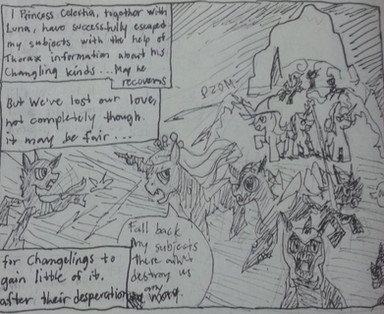 I Princess Celestia, together with
Luna, have successfully escaped
my subjects with the help of
Thorax information about his
Changling kinds... May he
recovers
But We've lost our love,
not completely though.
it may be fair ....
DZOM
for Changelings to
gain little of it.
after their desperation
Fall back
My subjects
there
destroy us
any
way.